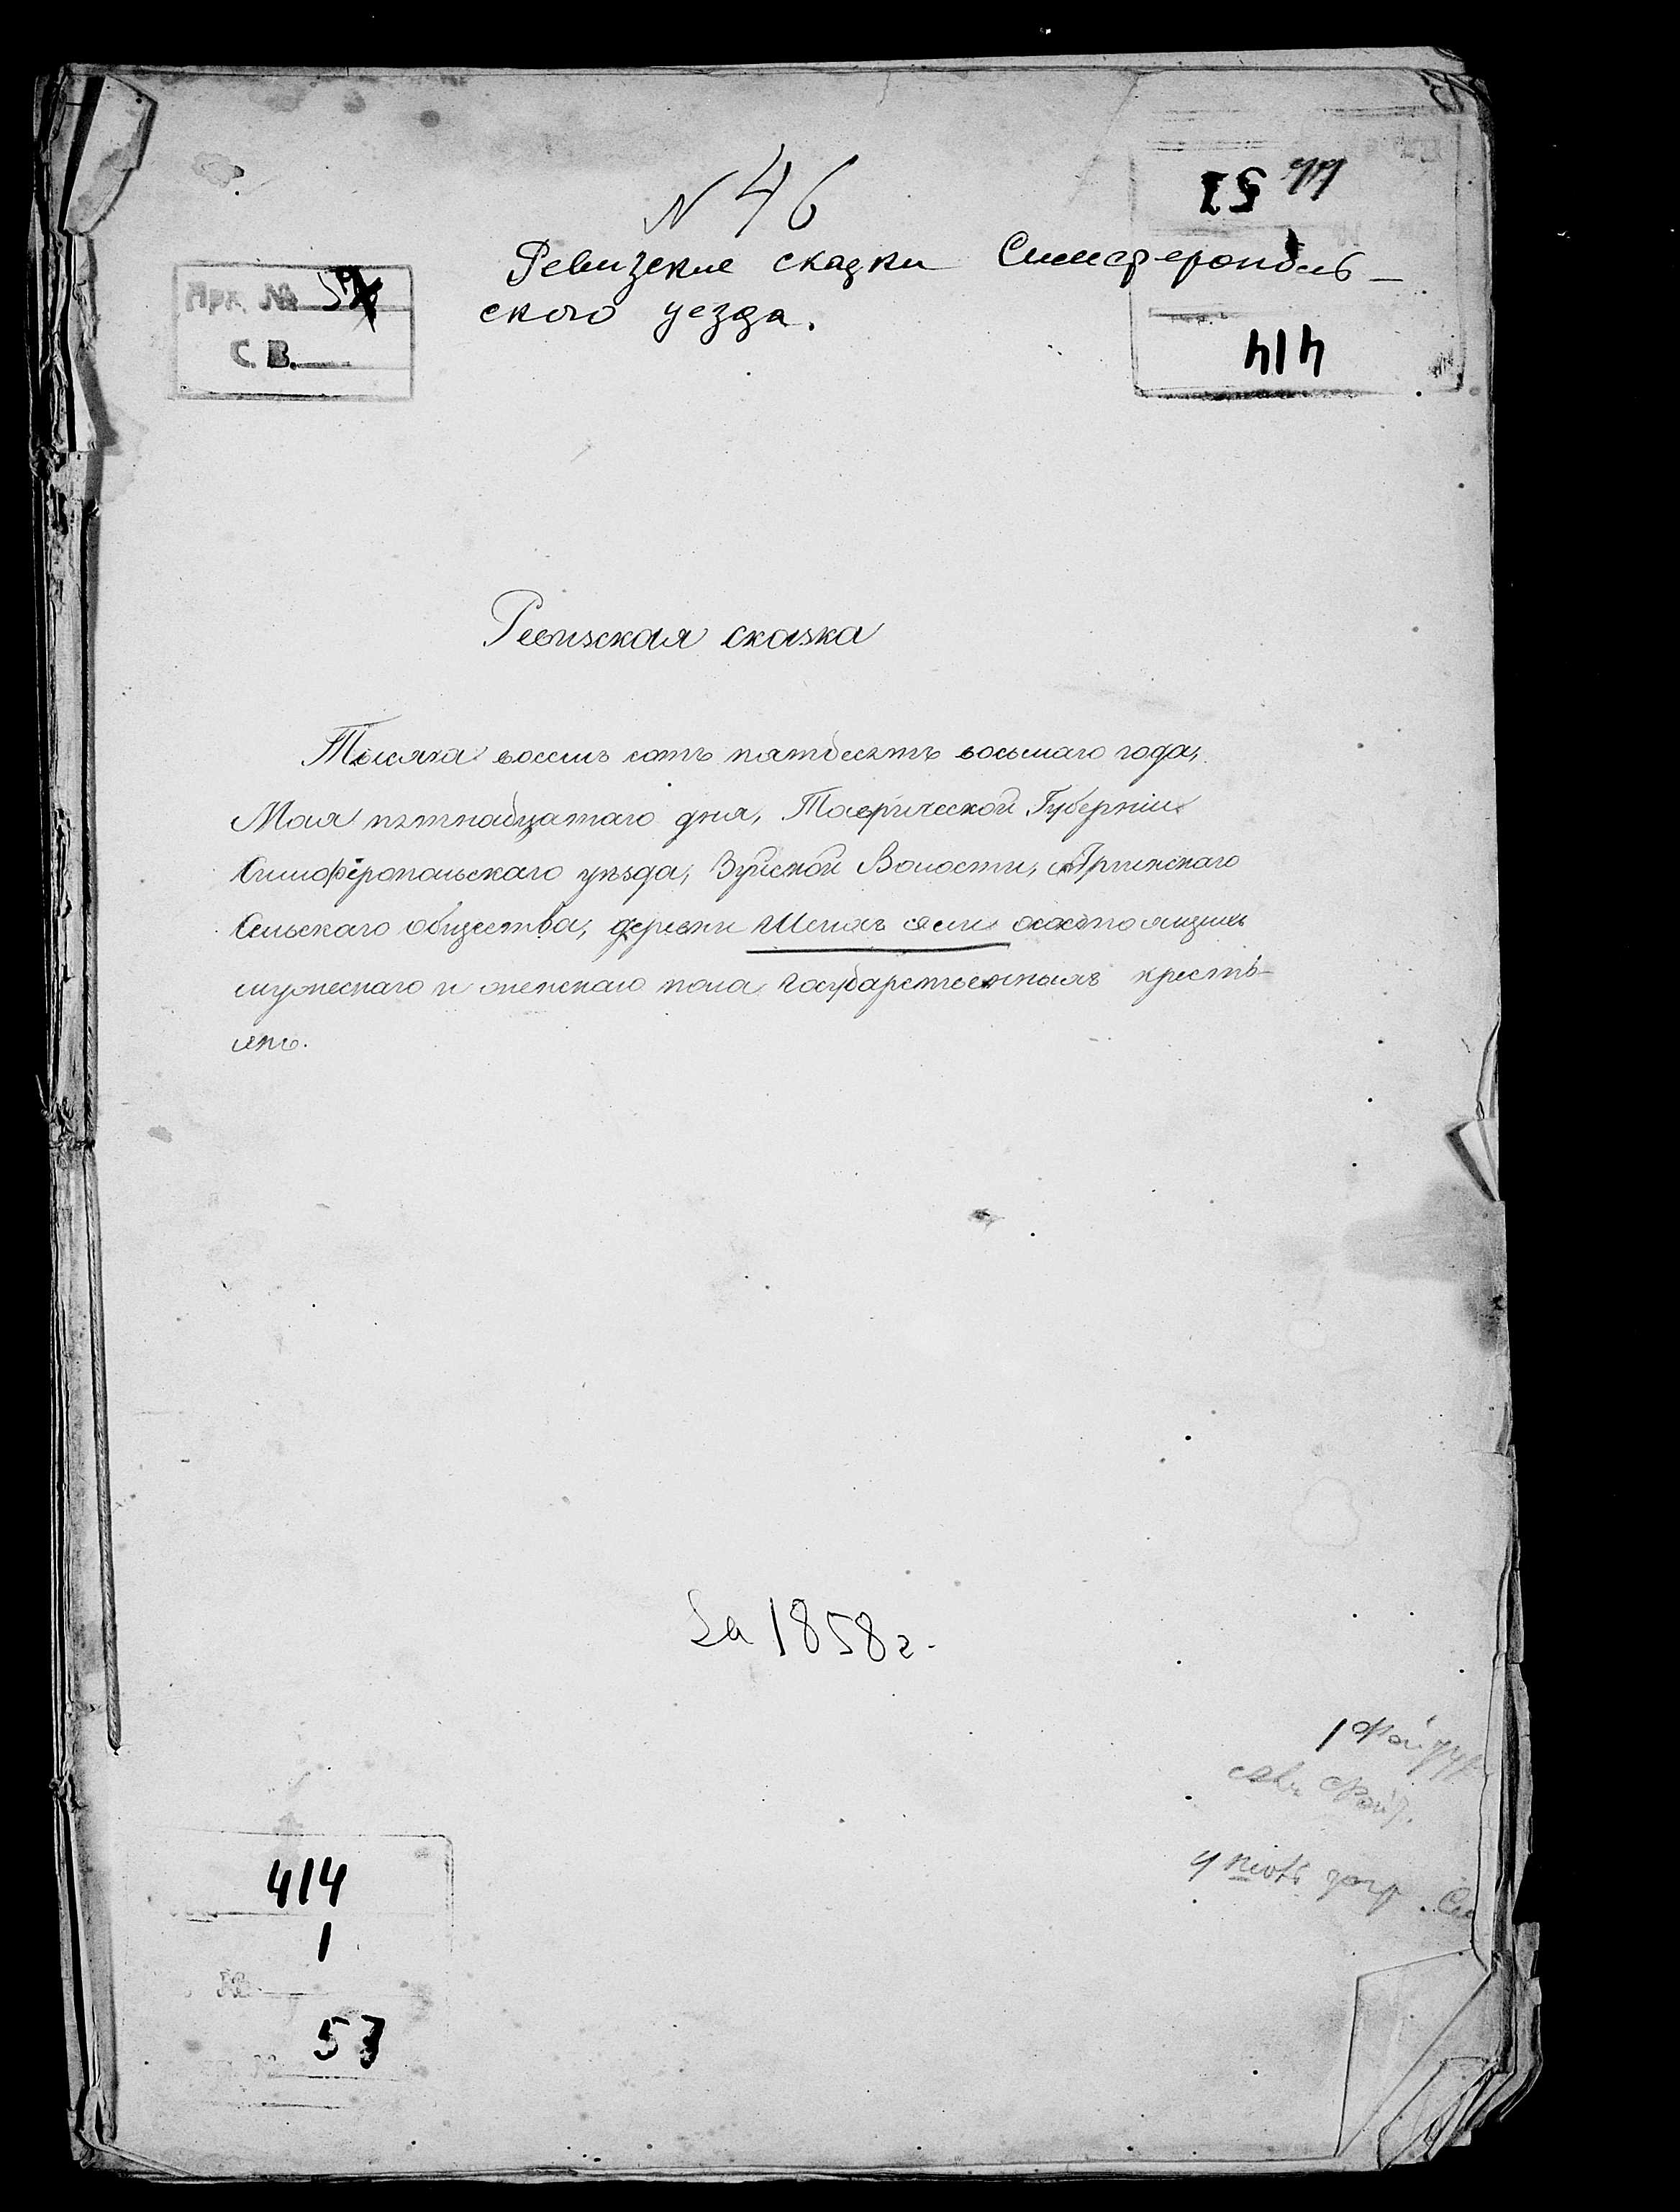 N 46
Ревизские сказки Симферополь-
ского уезда.
Арх. № 57
С. В.
57
414
Ревизская сказка
Тысяча восемь сотъ пятдесятъ восьмаго года,
Мая пятнадцатаго дня, Таврической Губерніи
Симферопольскаго уѣзда, Зуйской Волости, Аргинскаго
Сельскаго общества, деревни Шейхъ эли о состоящихъ
мужескаго и женскаго пола государственныхъ кресть-
янъ.
За 1858 г.
414
1
№
53